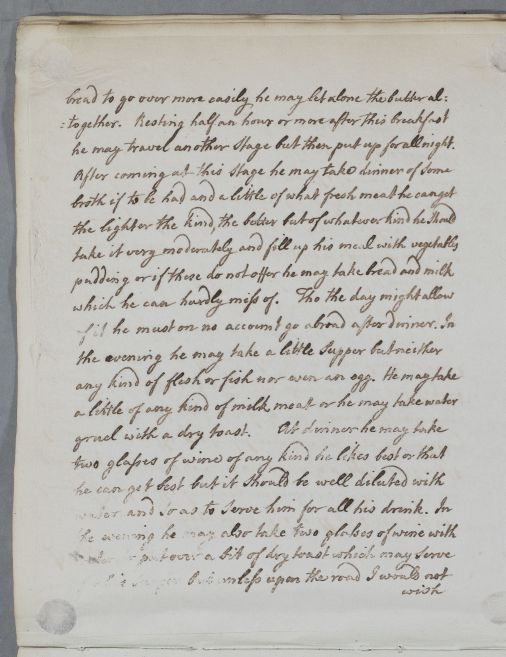 bread to go over more easily he may let alone the butter al:
:together. Resting half an hour or more after this breakfast
he may travel another Stage but then put up for all night.
After coming at this Stage he may take dinner of Some
broth if to be had and a little of what fresh meat he can get
the lighter the kind, the better but of whatever kind he Should
take it very moderately and fill up his meal with vegetables
pudding or if these do not offer he may take bread and milk
which he can hardly miss of. Tho the day might allow
of it he must on no account go abroad after dinner. In
the evening he may take a little Supper but neither
any kind of flesh or fish nor even an egg. He may take
a little of any kind of milk meat or he may take water
gruel with a dry toast. At dinner he may take
two glasses of wine of any kind he likes best or that
he can get best but it Should be well diluted with
water and So as to Serve him for all his drink. In
the evening he may also take two glasses of wine with
water put over a bit of dry toast which may Serve
Supper But unless upon the road I would not
wish